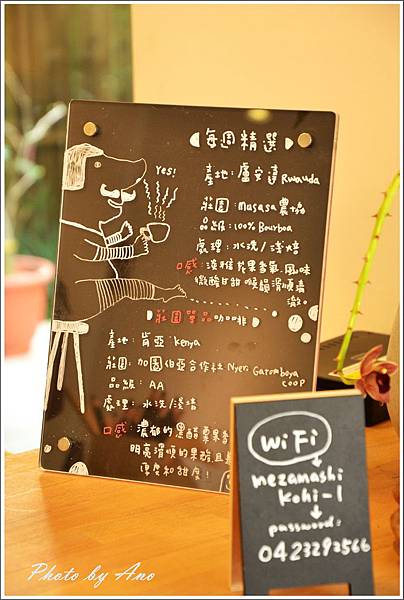 Yes!
每週精選
產地：盧安達 Rwanda
莊園：Musasa 農協
品級：100% Bourboa
處理：水洗/淺焙
口感：淡雅於果香氣.風味
微酸甘甜 喉韻滑順清
澈。
莊園單品咖啡
產地：肯亞：Kenya
莊園：加圖伯亞合作社 Nyeri Gatomboya
coop
品級：AA
處理：水洗/淺焙
口感：濃郁的黑醋栗果香
明亮滑順的果酸，且
厚度和甜度！
WiFi
mezamashi
kohi-1
password:
0423292566
Photo by Ano